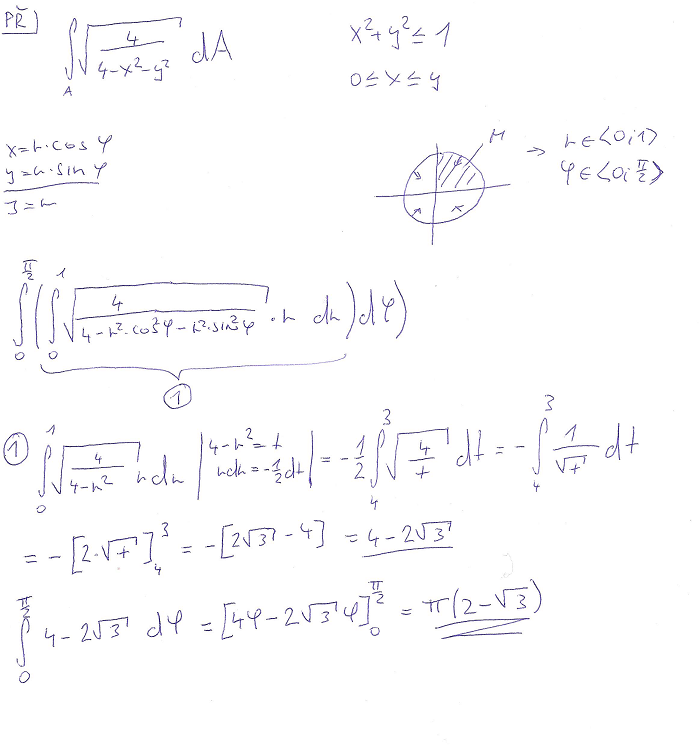 PŘ) ∫_A √(4/(4-x²-y²)) dA x²+y² ≤ 1
0 ≤ x ≤ y
x=r·cos φ M → r∈⟨0;1⟩
y=r·sin φ φ∈⟨0;π/2⟩
J=r
∫_0^{π/2} (∫_0^1 √(4/(4-r²·cos²φ-r²·sin²φ)) ·r dr) dφ)
①
① ∫_0^1 √(4/(4-r²)) r dr |4-r²=t rdr=-1/2 dt| = -1/2 ∫_4^3 √(4/t) dt = -∫_4^3 1/√t dt
= -[2·√t]_4^3 = -[2√3 - 4] = 4-2√3
∫_0^{π/2} 4-2√3 dφ = [4φ-2√3φ]_0^{π/2} = π(2-√3)